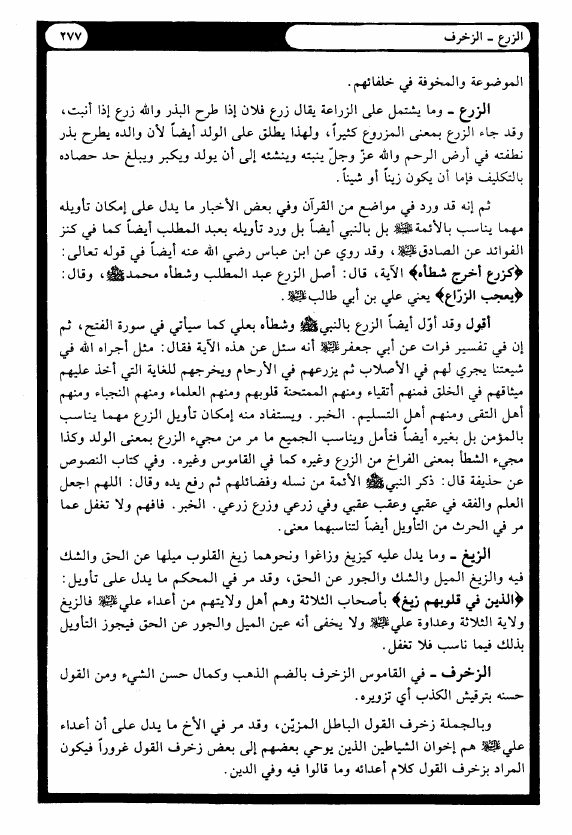 الزرع - الزخرف
٢٧٧
الموضوعة والمخوفة في خلفائهم.
الزرع - وما يشتمل على الزراعة يقال زرع فلان إذا طرح البذر والله زرع إذا أنبت،
وقد جاء الزرع بمعنى المزروع كثيراً، ولهذا يطلق على الولد أيضاً لأن والده يطرح بذر
نطفته في أرض الرحم والله عزّ وجلّ ينبته وينشئه إلى أن يولد ويكبر ويبلغ حد حصاده
بالتكليف فإما أن يكون زيناً أو شيناً.
ثم إنه قد ورد في مواضع من القرآن وفي بعض الأخبار ما يدل على إمكان تأويله
مهما يناسب بالأئمة ﷺ بل بالنبي أيضاً بل ورد تأويله بعبد المطلب أيضاً كما في كنز
الفوائد عن الصادق ﷺ، وقد روي عن ابن عباس رضي الله عنه أيضاً في قوله تعالى:
﴿كزرع أخرج شطأه﴾ الآية، قال: أصل الزرع عبد المطلب وشطأه محمد ﷺ، وقال:
﴿يعجب الزرّاع﴾ يعني علي بن أبي طالب ﷺ.
أقول وقد أوّل أيضاً الزرع بالنبي ﷺ وشطأه بعلي كما سيأتي في سورة الفتح، ثم
إن في تفسير فرات عن أبي جعفر ﷺ أنه سئل عن هذه الآية فقال: مثل أجراه الله في
شيعتنا يجري لهم في الأصلاب ثم يزرعهم في الأرحام ويخرجهم للغاية التي أخذ عليهم
ميثاقهم في الخلق فمنهم أتقياء ومنهم الممتحنة قلوبهم ومنهم العلماء ومنهم النجباء ومنهم
أهل التقى ومنهم أهل التسليم. الخبر. ويستفاد منه إمكان تأويل الزرع مهما يناسب
بالمؤمن بل بغيره أيضاً فتأمل ويناسب الجميع ما مر من مجيء الزرع بمعنى الولد وكذا
مجيء الشطأ بمعنى الفراخ من الزرع وغيره كما في القاموس وغيره. وفي كتاب النصوص
عن حذيفة قال: ذكر النبي ﷺ الأئمة من نسله وفضائلهم ثم رفع يده وقال: اللهم اجعل
العلم والفقه في عقبي وعقب عقبي وفي زرعي وزرع زرعي. الخبر. فافهم ولا تغفل عما
مر في الحرث من التأويل أيضاً لتناسبهما معنى.
الزيغ - وما يدل عليه كيزيغ وزاغوا ونحوهما زيغ القلوب ميلها عن الحق والشك
فيه والزيغ الميل والشك والجور عن الحق، وقد مر في المحكم ما يدل على تأويل:
﴿الذين في قلوبهم زيغ﴾ بأصحاب الثلاثة وهم أهل ولايتهم من أعداء علي ﷺ فالزيغ
ولاية الثلاثة وعداوة علي ﷺ ولا يخفى أنه عين الميل والجور عن الحق فيجوز التأويل
بذلك فيما ناسب فلا تغفل.
الزخرف - في القاموس الزخرف بالضم الذهب وكمال حسن الشيء ومن القول
حسنه بترقيش الكذب أي تزويره.
وبالجملة زخرف القول الباطل المزيّن، وقد مر في الأخ ما يدل على أن أعداء
علي ﷺ هم إخوان الشياطين الذين يوحي بعضهم إلى بعض زخرف القول غروراً فيكون
المراد بزخرف القول كلام أعدائه وما قالوا فيه وفي الدين.